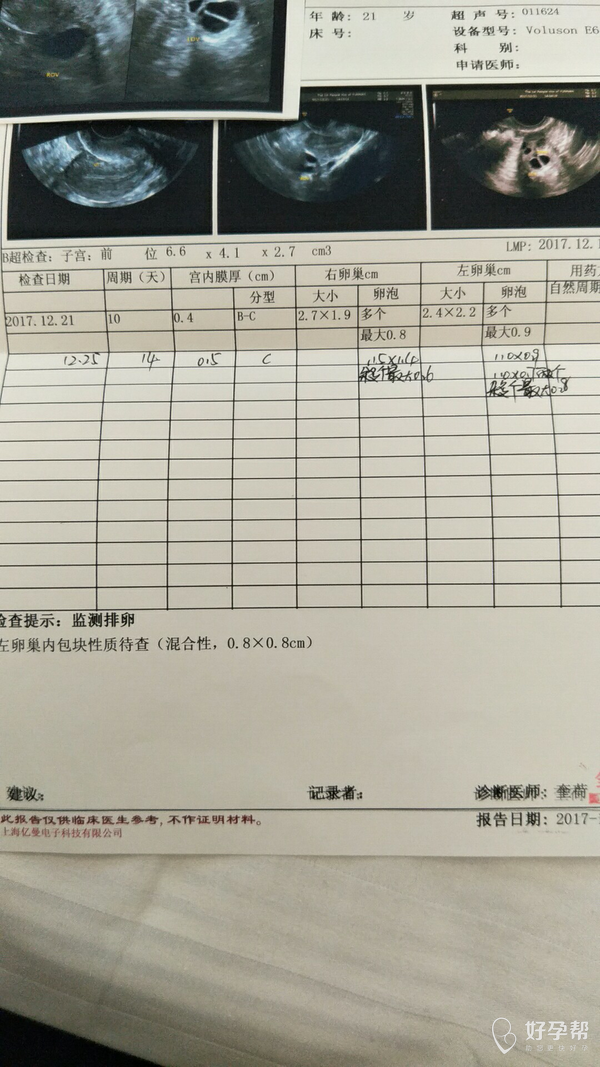 年 龄: 21 岁 超 声 号: 011624
床 号: 设备型号: Voluson E6
科 别:
申请医师:
ROV
B超检查: 子宫: 前 位 6.6 x 4.1 x 2.7 cm3 LMP: 2017.12.1
检查日期 周期(天) 宫内膜厚(cm) 右卵巢cm 左卵巢cm 用药
分型 大小 卵泡 大小 卵泡 自然周期
2017.12.21 10 0.4 B-C 2.7×1.9 多个 2.4×2.2 多个
最大0.8 最大0.9
12.25 14 0.5 C 1.0×0.9
检查提示: 监测排卵
左卵巢内包块性质待查(混合性, 0.8×0.8cm)
建议: 记录者: 诊断医师: 奎荷
此报告仅供临床医生参考, 不作证明材料。 报告日期: 2017-
上海亿曼电子科技有限公司
好孕帮